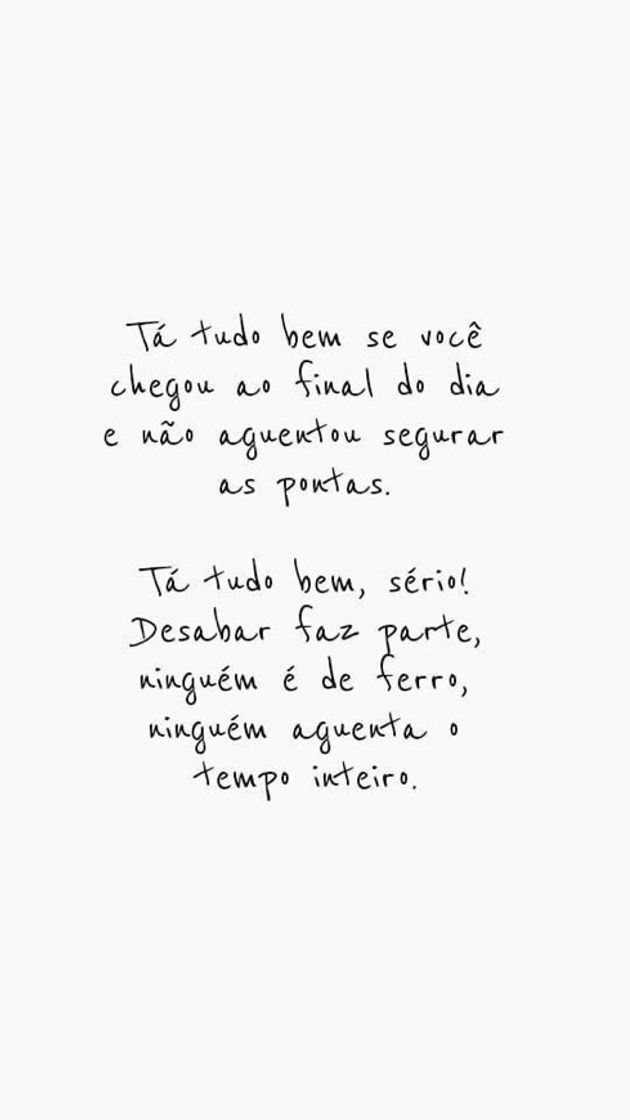 Tá tudo bem se você
chegou ao final do dia
e não aguentou segurar
as pontas.
Tá tudo bem, sério!
Desabar faz parte,
ninguém é de ferro,
ninguém aguenta o
tempo inteiro.